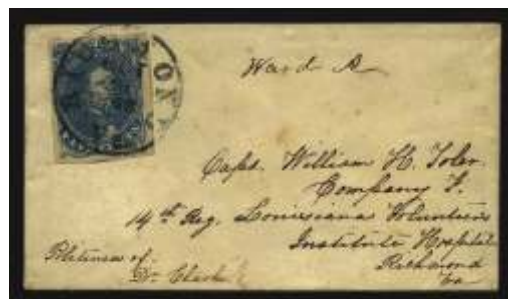 Ward A
Capt. William H. Toler
Company I.
14th Reg. Louisiana Volunteers
Institute Hospital
Richmond
Va
of
Dr. Clark